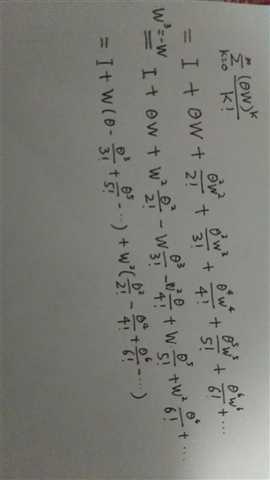 ∞Σk=0 (θW)^k/k!
= I + θW + θ²W²/2! + θ³W³/3! + θ⁴W⁴/4! + θ⁵W⁵/5! + θ⁶W⁶/6! + ...
W³=-W = I + θW + W² θ²/2! - W θ³/3! - W² θ⁴/4! + W θ⁵/5! + W² θ⁶/6! + ...
= I + W(θ - θ³/3! + θ⁵/5! - ...) + W²(θ²/2! - θ⁴/4! + θ⁶/6! - ...)